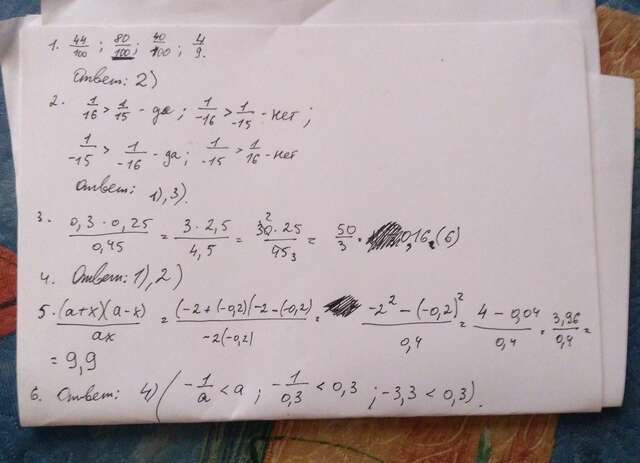 1. 44/100 ; 80/100 ; 40/100 ; 4/9.
Ответ: 2)
2. 1/16 > 1/15 - да ; 1/-16 > 1/-15 - нет ;
1/-15 > 1/-16 - да ; 1/-15 > 1/16 - нет
Ответ: 1), 3).
3. 0,3 · 0,25 / 0,45 = 3 · 2,5 / 4,5 = 30 2 · 25 / 45 3 = 50/3 · 0,16,(6)
4. Ответ: 1), 2)
5. (a+x)(a-x) / ax = (-2+(-0,2)(-2-(-0,2) / -2(-0,2) = -2² - (-0,2)² / 0,4 = 4 - 0,04 / 0,4 = 3,96 / 0,4 =
= 9,9
6. Ответ: 4) ( -1/a < a ; -1/0,3 < 0,3 ; -3,3 < 0,3).